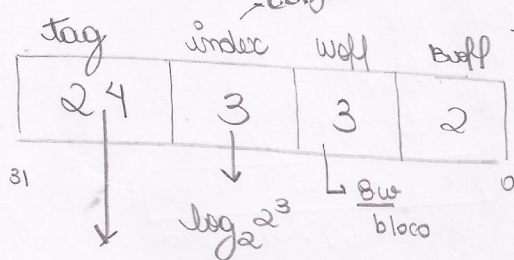 tag index woff Boff
24 3 3 2
31 0
log₂2³ 8w
bloco